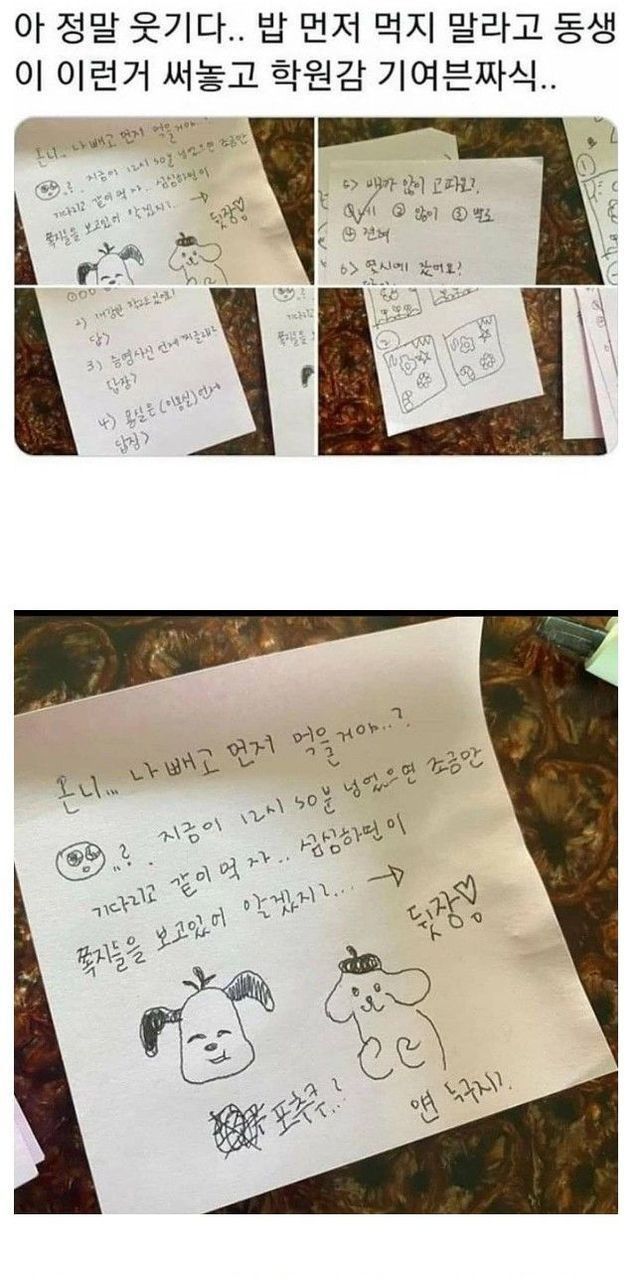 아 정말 웃기다.. 밥 먼저 먹지 말라고 동생
이 이런거 써놓고 학원감 기여븐짜식..
온니.. 나 빼고 먼저 먹을거야..?
..?. 지금이 12시 50분 넘었으면 조금만
기다리고 같이 먹자.. 심심하면 이
쪽지들을 보고있어 알겠지?.. →
뒷장♡
5> 배가 많이 고파요?
① 네 ② 많이 ③ 별로
④ 전혀
6> 몇시에 잤어요?
2)
답>
3) 증명사진 언제
답장>
4) 용실은 (미용실) 언제
답장>
①
②
온니... 나 빼고 먼저 먹을거야..?
..?. 지금이 12시 50분 넘었으면 조금만
기다리고 같이 먹자.. 심심하면 이
쪽지들을 보고있어 알겠지?... →
뒷장♡
포챠쿠..?
얜 누구지?.